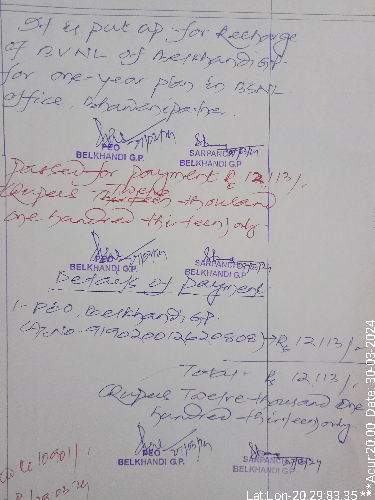 It is put up for Recharge
of BVNL of Belkhandi G.P.
for one-year plan in BSNL
office, Bhawanipatna.
PEO
BELKHANDI G.P.
SARPANCH
BELKHANDI G.P.
Passed for payment Rs 12,113/-
(Rupees Twelve thousand
one hundred thirteen) only.
PEO
BELKHANDI G.P.
SARPANCH
BELKHANDI G.P
Details of payment
1- PEO, Belkhandi G.P.
(A/c No- 919020012620808) → Rs 12,113/-
Total - Rs 12,113/-
(Rupees Twelve thousand one
hundred thirteen) only
PEO
BELKHANDI G.P.
SARPANCH
BELKHANDI G.P
Lat:Lon-20.29:83.35 ***Acur:20.00, Date: 30-03-2024